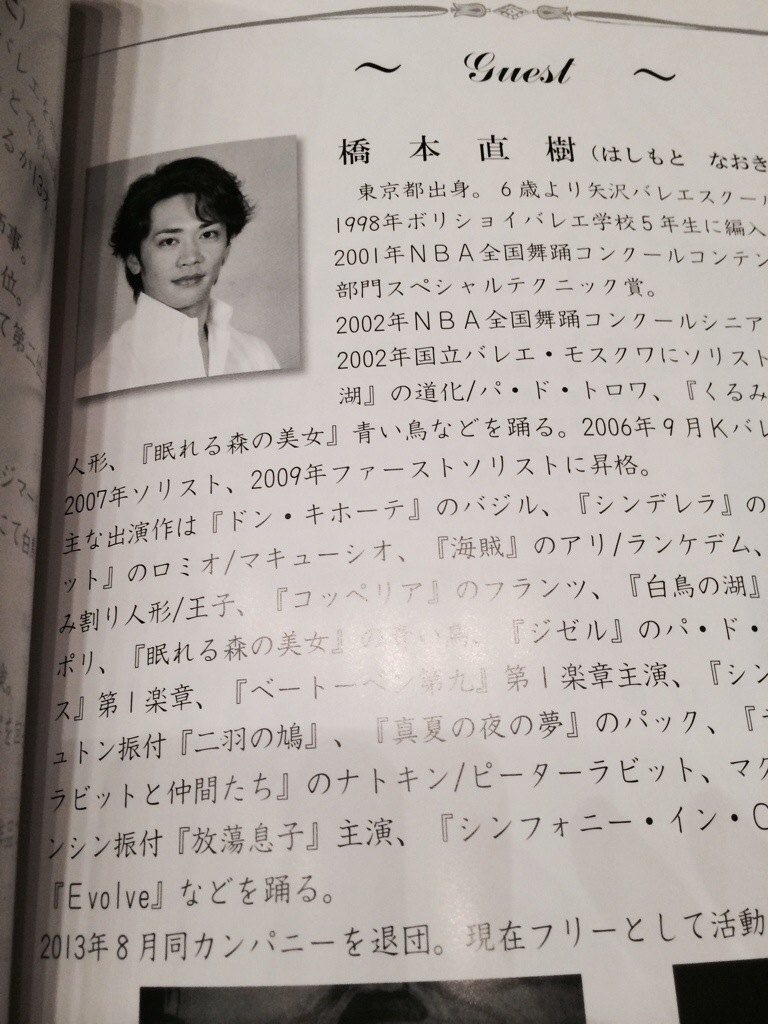 ～ Guest ～
橋本直樹(はしもと なおき
東京都出身。6歳より矢沢バレエスクー
1998年ボリショイバレエ学校5年生に編入
2001年NBA全国舞踊コンクールコンテン
部門スペシャルテクニック賞。
2002年NBA全国舞踊コンクールシニア
2002年国立バレエ・モスクワにソリスト
湖』の道化/パ・ド・トロワ、『くるみ
人形、『眠れる森の美女』青い鳥などを踊る。2006年9月Kバレ
2007年ソリスト、2009年ファーストソリストに昇格。
主な出演作は『ドン・キホーテ』のバジル、『シンデレラ』の
ット』のロミオ/マキューシオ、『海賊』のアリ/ランケデム、
み割り人形/王子、『コッペリア』のフランツ、『白鳥の湖』
ポリ、『眠れる森の美女』の青い鳥、『ジゼル』のパ・ド・
ス』第1楽章、『ベートーベン第九』第1楽章主演、『シン
ュトン振付『二羽の鳩』、『真夏の夜の夢』のパック、『
ラビットと仲間たち』のナトキン/ピーターラビット、マク
ンシン振付『放蕩息子』主演、『シンフォニー・イン・C
『Evolve』などを踊る。
2013年8月同カンパニーを退団。現在フリーとして活動